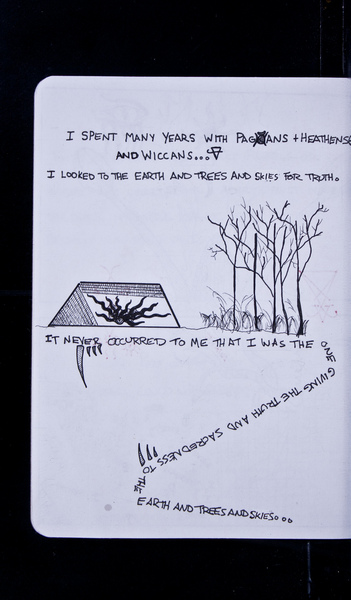 I SPENT MANY YEARS WITH PAGANS + HEATHENS
AND WICCANS...
I LOOKED TO THE EARTH AND TREES AND SKIES FOR TRUTH.
IT NEVER OCCURRED TO ME THAT I WAS THE
ONE
GIVING THE TRUTH AND SACREDNESS TO
THE
EARTH AND TREES AND SKIES...